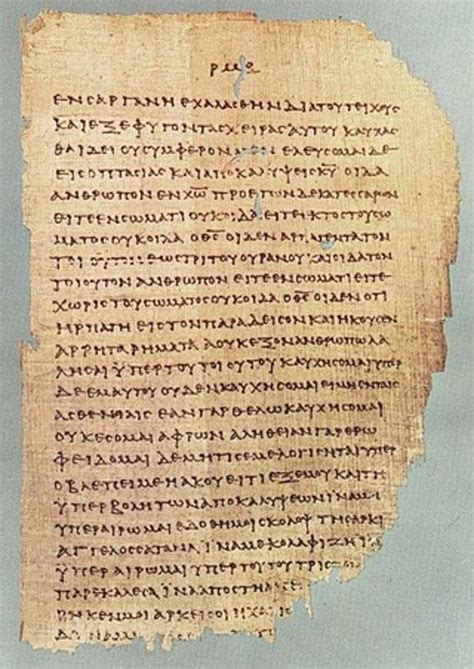 ΕΝϹΑΡΓΑΝΗΕΧΑΛΑϹΘΗΝΔΙΑΤΟΥΤΕΙΧΟΥϹ
ΚΑΙΕΞΕΦΥΓΟΝΤΑϹΧΕΙΡΑϹΑΥΤΟΥΚΑΥΧΑϹ
ΘΑΙΔΕΙΟΥϹΥΜΦΕΡΟΝΜΕΝΕΛΕΥϹΟΜΑΙΔΕ
ΕΙϹΟΠΤΑϹΙΑϹΚΑΙΑΠΟΚΑΛΥΨΕΙϹΚ̅Υ̅ΟΙΔΑ
ΑΝΘΡΩΠΟΝΕΝΧ̅Ω̅ΠΡΟΕΤΩΝΔΕΚΑΤΕϹϹΑΡΩΝ
ΕΙΤΕΕΝϹΩΜΑΤΙΟΥΚΟΙΔΑΕΙΤΕΕΚΤΟϹΤΟΥϹΩ
ΜΑΤΟϹΟΥΚΟΙΔΑΟΘ̅Ϲ̅ΟΙΔΕΝΑΡΠΑΓΕΝΤΑΤΟΝ
ΤΟΙΟΥΤΟΝΕΩϹΤΡΙΤΟΥΟΥΡΑΝΟΥΚΑΙΟΙΔΑΤΟΝ
ΤΟΙΟΥΤΟΝΑΝΘΡΩΠΟΝΕΙΤΕΕΝϹΩΜΑΤΙΕΙΤΕ
ΧΩΡΙϹΤΟΥϹΩΜΑΤΟϹΟΥΚΟΙΔΑΟΘ̅Ϲ̅ΟΙΔΕΝΟΤΙ
ΗΡΠΑΓΗΕΙϹΤΟΝΠΑΡΑΔΕΙϹΟΝΚΑΙΗΚΟΥϹΕΝ
ΑΡΡΗΤΑΡΗΜΑΤΑΑΟΥΚΕΞΟΝΑΝΘΡΩΠΩΛΑ
ΛΗϹΑΙΫΠΕΡΤΟΥΤΟΙΟΥΤΟΥΚΑΥΧΗϹΟΜΑΙΫΠΕΡ
ΔΕΕΜΑΥΤΟΥΟΥΔΕΝΚΑΥΧΗϹΟΜΑΙΕΙΜΗΕΝΤΑΙϹ
ΑϹΘΕΝΙΑΙϹΕΑΝΓΑΡΘΕΛΩΚΑΥΧΗϹΟΜΑΙ
ΟΥΚΕϹΟΜΑΙΑΦΡΩΝΑΛΗΘΕΙΑΝΓΑΡΕΡΩ
ΦΕΙΔΟΜΑΙΔΕΜΗΤΙϹΕΜΕΛΟΓΙϹΗΤΑΙΫΠΕΡ
ΟΒΛΕΠΕΙΜΕΗΑΚΟΥΕΙΤΙΕΞΕΜΟΥΚΑΙΤΗ
ΫΠΕΡΒΟΛΗΤΩΝΑΠΟΚΑΛΥΨΕΩΝΙΝΑΜΗ
ΫΠΕΡΑΙΡΩΜΑΙΕΔΟΘΗΜΟΙϹΚΟΛΟΨΤΗϹΑΡΚΙ
ΑΓΓΕΛΟϹϹΑΤΑΝΑΪΝΑΜΕΚΟΛΑΦΙΖΗΪ
ΫΠΕΡΑΙΡΩΜΑΙΫΠΕΡΤΟΥΤΟΥΤΡΙϹ
ΠΑΡΕΚΑΛΕϹΑΪΝΑΑΠΟϹΤΗ
ΡΗΚΕΝΜΟΙΑΡΚΕΙϹΟΙΗΧΑΡΙϹ
ΔΥΝΑΜΙϹ